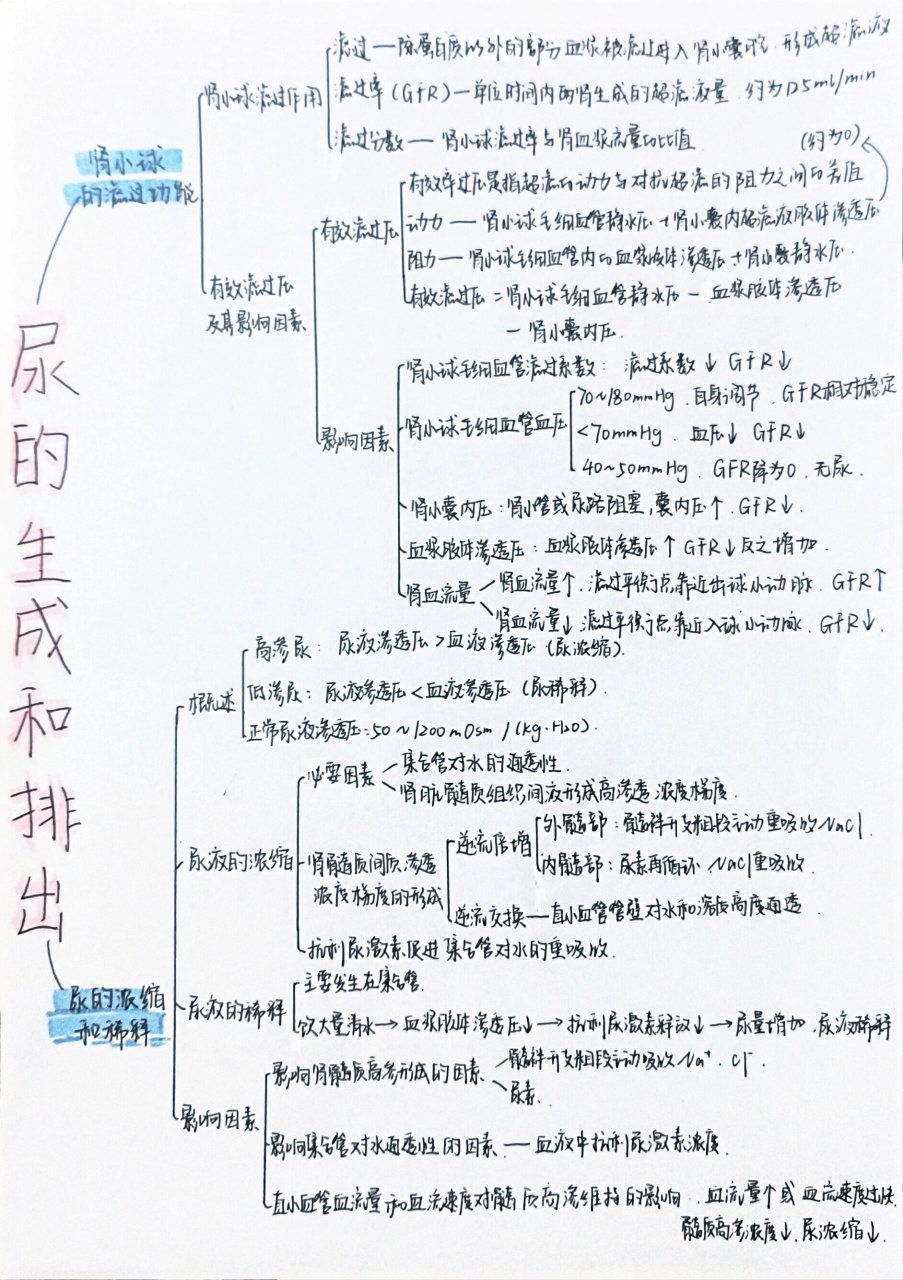 尿的生成和排出
肾小球
的滤过功能
肾小球滤过作用
滤过—除蛋白质以外的部分血浆被滤过进入肾小囊腔,形成超滤液
滤过率(GFR)—单位时间内两肾生成的超滤液量,约为125ml/min
滤过分数—肾小球滤过率与肾血浆流量的比值
(约为0)
有效滤过压
及其影响因素
有效滤过压
有效率过压是指超滤的动力与对抗超滤的阻力之间的差值
动力—肾小球毛细血管静水压+肾小囊内超滤液胶体渗透压
阻力—肾小球毛细血管内的血浆胶体渗透压+肾小囊静水压.
有效滤过压=肾小球毛细血管静水压-血浆胶体渗透压
-肾小囊内压.
影响因素
肾小球毛细血管滤过系数:滤过系数↓ GFR↓
肾小球毛细血管血压
70~180mmHg.自身调节,GFR相对稳定
<70mmHg.血压↓ GFR↓
40~50mmHg.GFR降为0.无尿.
肾小囊内压:肾小管或尿路阻塞,囊内压↑.GFR↓.
血浆胶体渗透压:血浆胶体渗透压↑GFR↓反之增加.
肾血流量
肾血流量↑,滤过平衡点靠近出球小动脉.GFR↑
肾血流量↓滤过平衡点靠近入球小动脉.GFR↓.
尿的浓缩
和稀释
概述
高渗尿:尿液渗透压>血液渗透压(尿浓缩).
低渗尿:尿液渗透压<血液渗透压(尿稀释).
正常尿液渗透压:50~1200mOsm/(kg·H2O).
尿液的浓缩
必要因素
集合管对水的通透性.
肾脏髓质组织间液形成高渗透浓度梯度.
肾髓质间质渗透
浓度梯度的形成
逆流倍增
外髓部:髓袢升支粗段主动重吸收NaCl.
内髓部:尿素再循环.NaCl重吸收.
逆流交换—直小血管管壁对水和溶质高度通透.
抗利尿激素促进集合管对水的重吸收.
尿液的稀释
主要发生在集合管.
饮大量清水→血浆胶体渗透压↓→抗利尿激素释放↓→尿量增加.尿液稀释
影响因素
影响肾髓质高渗形成的因素
髓袢升支粗段主动吸收Na⁺.Cl⁻.
尿素.
影响集合管对水通透性的因素.—血液中抗利尿激素浓度.
直小血管血流量和血流速度对髓质高渗维持的影响.血流量↑或血流速度过快.
髓质高渗浓度↓.尿浓缩↓.